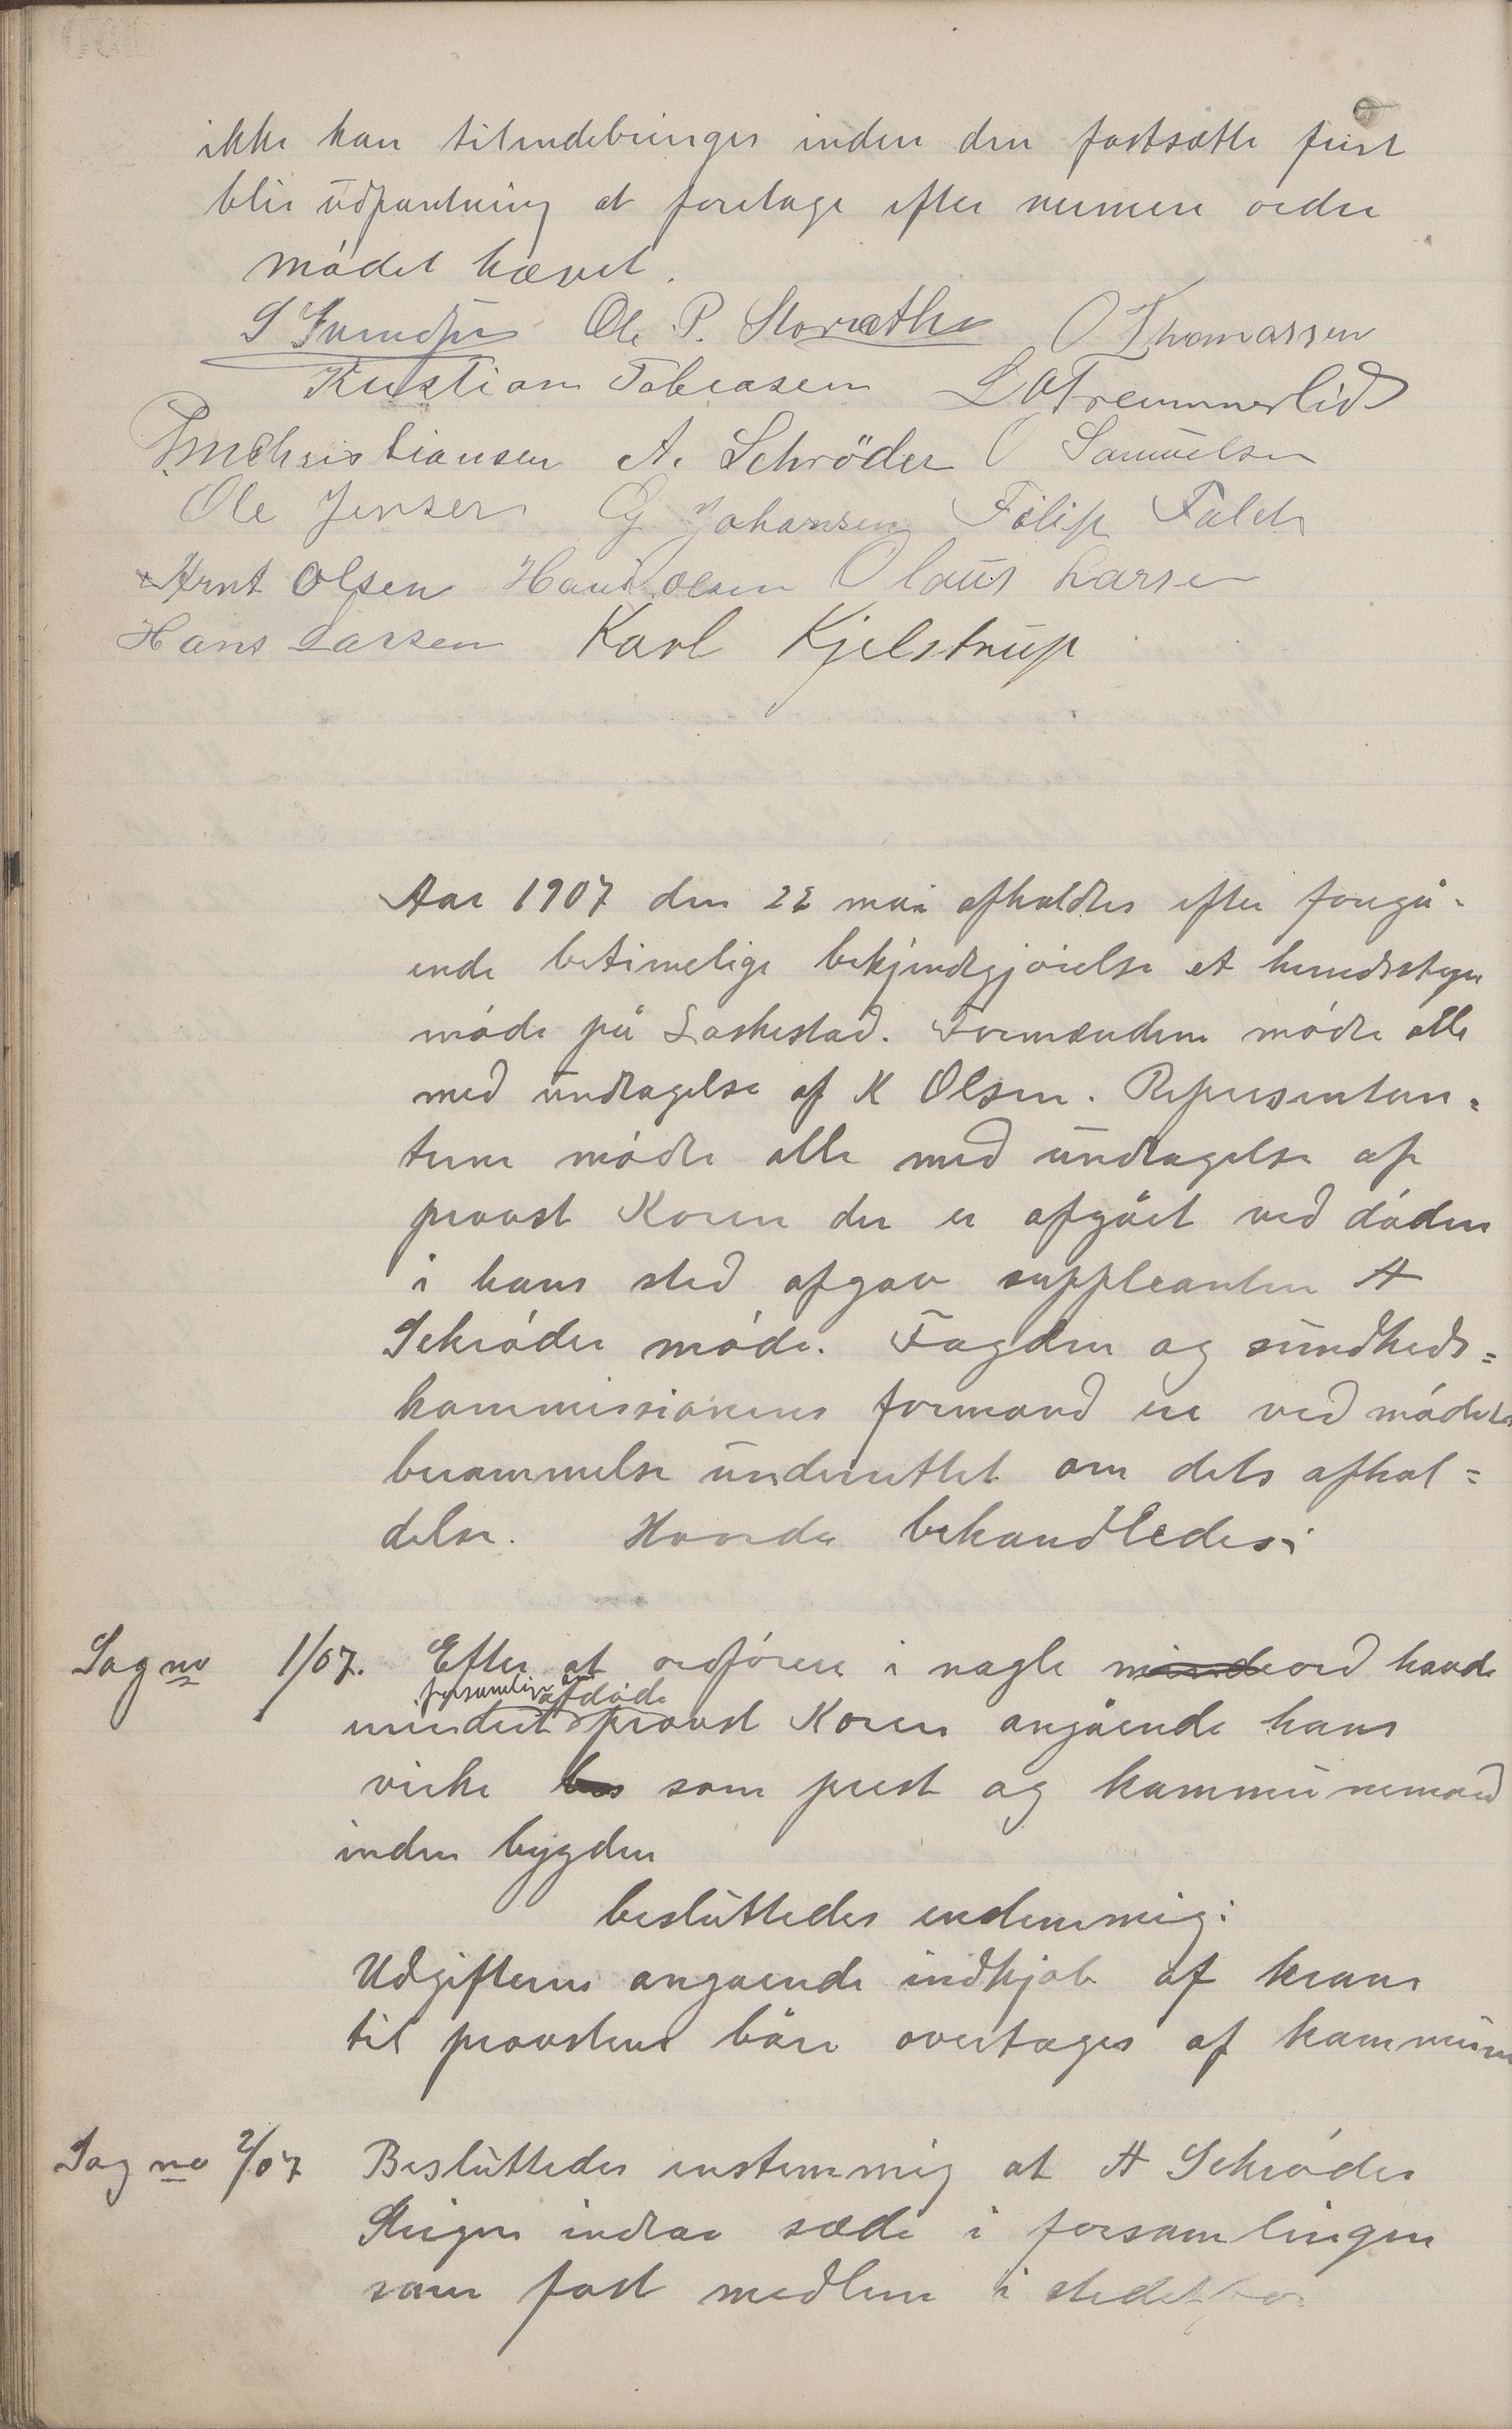 ikke kan tilendebringes inden den fastsatte frist
blir udpantning at foretage efter nermere ordre
mødet hævet.
Ole P. Storvatn O Thomassen
Kristian Tobiasen L O Tremmerlid
Christiansen A. Schröder O Samuelsen
Ole Jensen G Johansen Filip Falch
Arnt Olsen Hans Olsen Olaus Larsen
Hans Larsen Karl Kjelstrup
Aar 1907 den 22 mai afholdtes efter foregå-
ende betimelige bekjendtgjørelse et herredsstyre
møde på Laskestad. Formændene mødte alle
med undtagelse af K Olsen. Representan=
terne mødte alle med undtagelse af
provst Koren der er afgået ved døden
i hans sted afgav suppleanten A
Schrøder møde. Fogden og sundheds=
kommissionens formand er ved mødets
berammelse underrettet om dets afhol=
delse. Hvorda behandledes:
Sag no 1/07. Efter at ordfører i nogle mindeord havde
forsamlingen afdøde
mindet provst Koren angående hans
virke som prest og kommunemand
inden bygden
besluttedes endstemmig:
Udgifterne angaende indkjøb af krans
til provstens båre overtages af kommunen
Sag no 2/07 Besluttedes enstemmig at A Schrøder
Steigen indtar sæde i forsamlingen
som fast medlem i stedet for